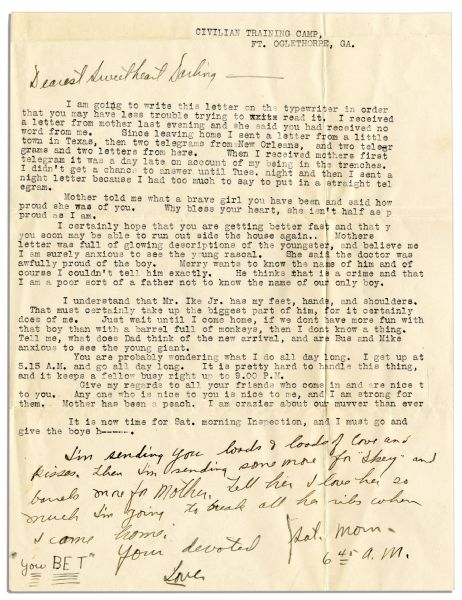 CIVILIAN TRAINING CAMP,
FT. OGLETHORPE, GA.
Dearest Sweetheart Darling
I am going to write this letter on the typewriter in order
that you may have less trouble trying to xxits read it. I received
a letter from mother last evening and she said you had received no
word from me. Since leaving home I sent a letter from a little
town in Texas, then two telegrams from New Orleans, and two telegr
grams and two letters from here. When I received mothers first
telegram it was a day late on account of my being in the trenches.
I didn't get a chance to answer until Tues. night and then I sent a
night letter because I had too much to say to put in a straight tel
egram.
Mother told me what a brave girl you have been and said how
proud she was of you. Why bless your heart, she isn't half as p
proud as I am.
I certainly hope that you are getting better fast and that y
you soon may be able to run out side the house again. Mothers
letter was full of glowing descriptions of the youngster, and believe me
I am surely anxious to see the young rascal. She said the doctor was
awfully proud of the boy. Merry wants to know the name of him and of
course I couldn't tell him exactly. He thinks that is a crime and that
I am a poor sort of a father not to know the name of our only boy.
I understand that Mr. Ike Jr. has my feet, hands, and shoulders.
That must certainly take up the biggest part of him, for it certainly
does of me. Just wait until I come home, if we dont have more fun with
that boy than with a barrel full of monkeys, then I dont know a thing.
Tell me, what does Dad think of the new arrival, and are Bus and Mike
anxious to see the young giant.
You are probably wondering what I do all day long. I get up at
5.15 A.M. and go all day long. It is pretty hard to handle this thing,
and it keeps a fellow busy right up to 9.00 P.M.
Give my regards to all your friends who come in and are nice t
to you. Any one who is nice to you is nice to me, and I am strong for
them. Mother has been a peach. I am crazier about our muvver than ever
It is now time for Sat. morning Inspection, and I must go and
give the boys h-----.
I'm sending you loads & loads of love and
kisses. Then I'm sending some more for "Ikey" and
barrels more for Mother. Tell her I love her so
much I'm going to break all her ribs when
I come home.
Your devoted
Lover
Sat. Morn.
6 45 A.M.
"You BET"